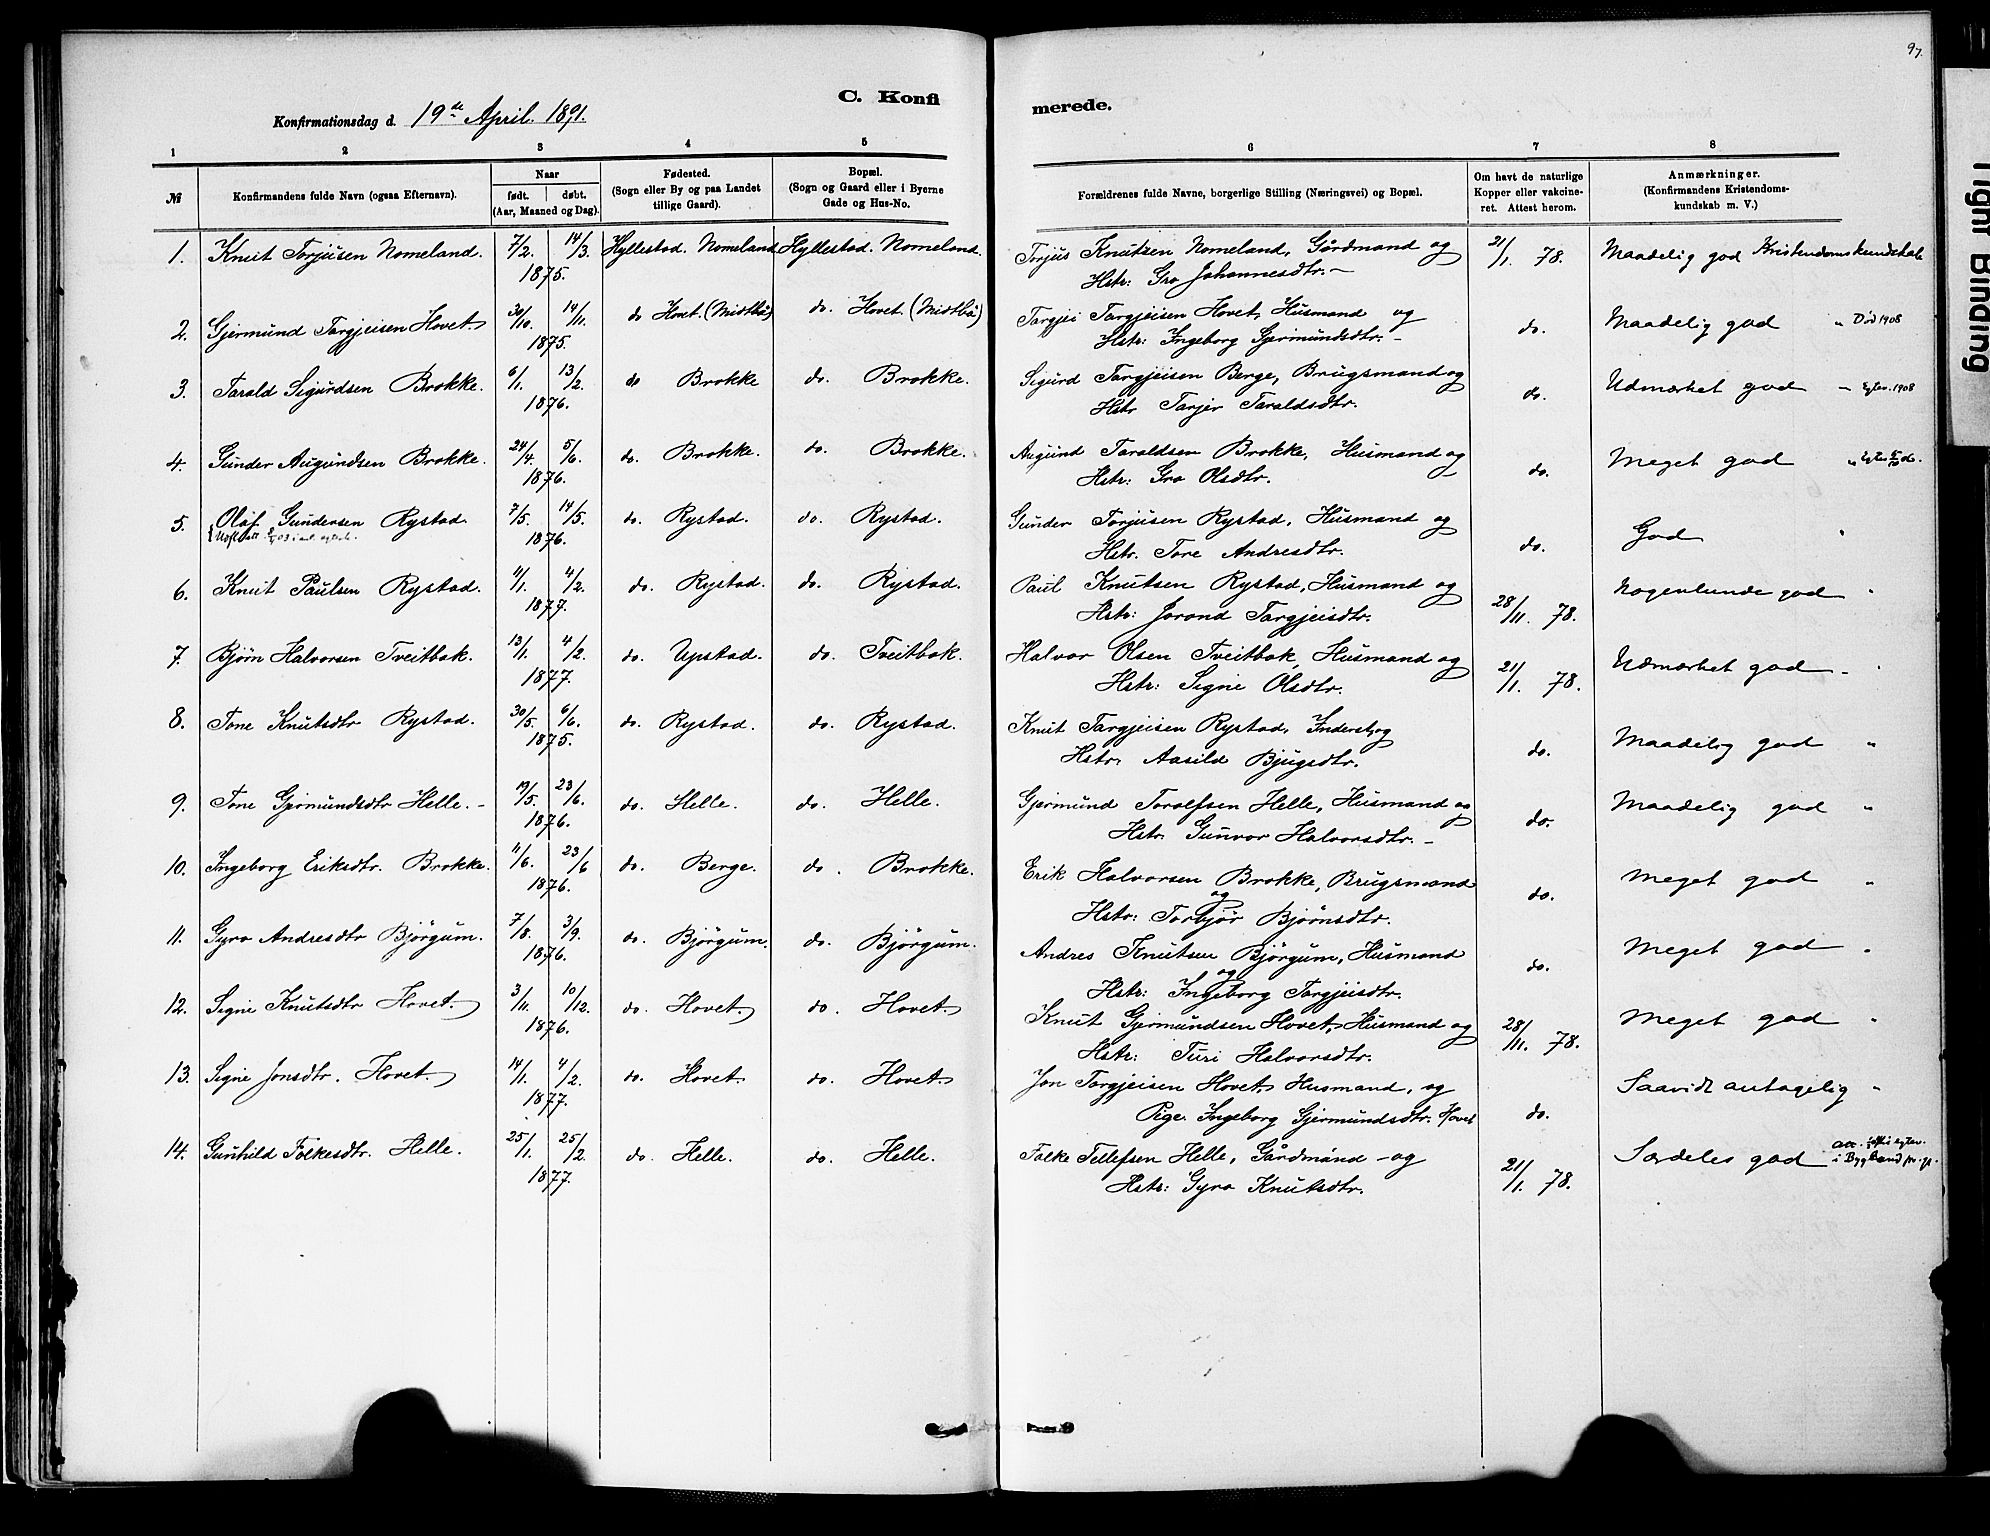 97.
C. Konfi
merede.
Konfirmationsdag d. 19de April 1891.
1 2 3 4 5 6 7 8
№
Konfirmandens fulde Navn (ogsaa Efternavn).
Naar
født. døbt.
(Aar, Maaned og Dag).
Fødested.
(Sogn eller By og paa Landet
tillige Gaard).
Bopæl.
(Sogn og Gaard eller i Byerne
Gade og Hus-No.
Forældrenes fulde Navne, borgerlige Stilling (Næringsvei) og Bopæl.
Om havt de naturlige
Kopper eller vakcine-
ret. Attest herom.
Anmærkninger.
(Konfirmandens Kristendoms-
kundskab m. V.)
1. Knut Torjusen Nomeland. 7/2. 14/3. Hyllestad. Nomeland Hyllestad. Nomeland. Torjus Knutsen Nomeland, Gårdmand og 21/1. 78. Maadelig god Kristendomskundskab
1875. Hstr: Gro Johannesdtr. –
2. Gjermund Targjeisen Hovet. 30/10. 14/11. do Hovet (Midtbö) do. Hovet (Midtbö) Targjei Targjeisen Hovet, Husmand og do. Maadelig god " Död 1908
1875. Hstr: Ingeborg Gjermundsdtr. –
3. Tarald Sigurdsen Brokke. 6/1. 13/2. do Brokke do. Brokke. Sigurd Targjeisen Berge, Brugsmand og do. Udmærket god – 1908
1876. Hstr Tarjer Taraldsdtr.
4. Gunder Augundsen Brokke. 24/4. 5/6. do. Brokke. do Brokke. Augund Taraldsen Brokke, Husmand og do. Meget god "
1876. Hstr: Gro Olsdtr.
5. Olaf Gundersen Rystad 7/5. 14/5. do. Rystad. do. Rystad. Gunder Torjusen Rystad, Husmand og do. God "
1876. Hstr. Tore Andresdtr.
6. Knut Paulsen Rystad. 11/1. 4/2. do. Rystad. do. Rystad. Paul Knutsen Rystad, Husmand og 28/11. 78. Nogenlunde god "
1877. Hstr: Jorond Targjeisdtr.
7. Bjørn Halvorsen Tveitbak. 13/1. 4/2. do. Upstad. do. Tveitbak. Halvor Olsen Tveitbak, Husmand og 21/1. 78. Udmærket god –
1877. Hstr: Signe Olsdtr.
8. Tone Knutsdtr Rystad. 30/5. 6/6. do. Rystad. do. Rystad. Knut Targjeisen Rystad, Inderst, og do. Maadelig god "
1875. Hstr. Aasild Bjugsdtr.
9. Tone Gjermundsdtr Helle. – 19/5. 23/6. do. Helle. do. Helle. Gjermund Torolfsen Helle, Husmand og do. Maadelig god "
1876. Hstr. Gunvor Halvorsdtr. –
10. Ingeborg Eriksdtr. Brokke. 11/6. 23/6 do. Berge. do. Brokke. Erik Halvorsen Brokke, Brugsmand do. Meget god "
1876. og Hstr: Torbjör Bjørnsdtr.
11. Gyro Andresdtr Bjørgum. 7/8. 3/9. do. Bjørgum. do. Bjørgum. Andres Knutsen Bjørgum, Husmand do. Meget god "
1876. og Hstr: Ingeborg Targjeisdtr.
12. Signe Knutsdtr Hovet. 3/11. 10/12. do. Hovet. do. Hovet. Knut Gjermundsen Hovet, Husmand og 28/11. 78. Meget god "
1876. Hstr: Turi Halvorsdtr.
13. Signe Jonsdtr. Hovet. 14/1. 4/2. do. Hovet. do. Hovet. Jon Targjeisen Hovet, Husmand, og do. Saavidt antagelig "
1877. Pige Ingeborg Gjermundsdtr. Hovet
14. Gunhild Folkesdtr. Helle. 25/1. 25/2. do. Helle. do. Helle. Folke Tellefsen Helle, Gårdmand – og 21/1. 78. Særdeles god
1877. Hstr: Gyro Knutsdtr. i Bygland
Tight Binding